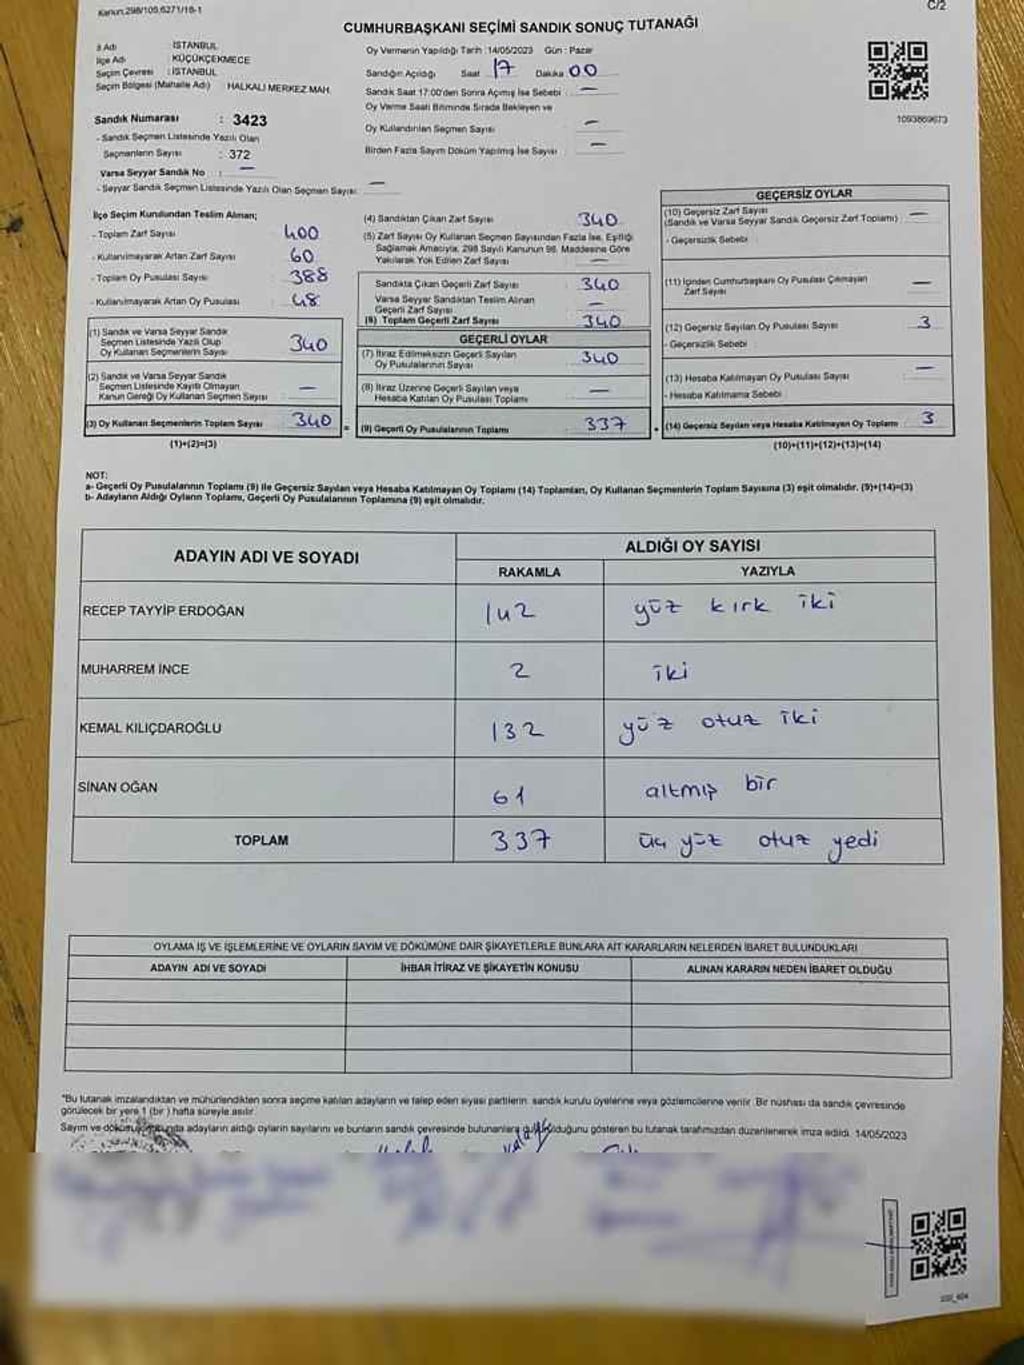 Kanun:298/105,6271/16-1
C/2
CUMHURBAŞKANI SEÇİMİ SANDIK SONUÇ TUTANAĞI
İl Adı : İSTANBUL
İlçe Adı : KÜÇÜKÇEKMECE
Seçim Çevresi : İSTANBUL
Seçim Bölgesi (Mahalle Adı) HALKALI MERKEZ MAH.
Sandık Numarası : 3423
- Sandık Seçmen Listesinde Yazılı Olan
Seçmenlerin Sayısı : 372
Varsa Seyyar Sandık No : —
- Seyyar Sandık Seçmen Listesinde Yazılı Olan Seçmen Sayısı: —
Oy Vermenin Yapıldığı Tarih :14/05/2023 Gün : Pazar
Sandığın Açıldığı Saat 17 Dakika 00
Sandık Saat 17:00'den Sonra Açılmış İse Sebebi : —
Oy Verme Saati Bitiminde Sırada Bekleyen ve
Oy Kullandırılan Seçmen Sayısı —
Birden Fazla Sayım Döküm Yapılmış İse Sayısı : —
1093869673
İlçe Seçim Kurulundan Teslim Alınan;
- Toplam Zarf Sayısı 400
- Kullanılmayarak Artan Zarf Sayısı 60
- Toplam Oy Pusulası Sayısı 388
- Kullanılmayarak Artan Oy Pusulası 48
(1) Sandık ve Varsa Seyyar Sandık
Seçmen Listesinde Yazılı Olup
Oy Kullanan Seçmenlerin Sayısı 340
(2) Sandık ve Varsa Seyyar Sandık
Seçmen Listesinde Kayıtlı Olmayan
Kanun Gereği Oy Kullanan Seçmen Sayısı —
(3) Oy Kullanan Seçmenlerin Toplam Sayısı 340
(1)+(2)=(3)
(4) Sandıktan Çıkan Zarf Sayısı 340
(5) Zarf Sayısı Oy Kullanan Seçmen Sayısından Fazla İse, Eşitliği
Sağlamak Amacıyla, 298 Sayılı Kanunun 98. Maddesine Göre
Yakılarak Yok Edilen Zarf Sayısı —
Sandıkta Çıkan Geçerli Zarf Sayısı 340
Varsa Seyyar Sandıktan Teslim Alınan
Geçerli Zarf Sayısı —
(6) Toplam Geçerli Zarf Sayısı 340
GEÇERLİ OYLAR
(7) İtiraz Edilmeksizin Geçerli Sayılan
Oy Pusulalarının Sayısı 340
(8) İtiraz Üzerine Geçerli Sayılan veya
Hesaba Katılan Oy Pusulası Toplamı —
(9) Geçerli Oy Pusulalarının Toplamı 337
GEÇERSİZ OYLAR
(10) Geçersiz Zarf Sayısı
(Sandık ve Varsa Seyyar Sandık Geçersiz Zarf Toplamı) —
- Geçersizlik Sebebi :
(11) İçinden Cumhurbaşkanı Oy Pusulası Çıkmayan
Zarf Sayısı —
(12) Geçersiz Sayılan Oy Pusulası Sayısı 3
- Geçersizlik Sebebi :
(13) Hesaba Katılmayan Oy Pusulası Sayısı —
- Hesaba Katılmama Sebebi :
(14) Geçersiz Sayılan veya Hesaba Katılmayan Oy Toplamı 3
(10)+(11)+(12)+(13)=(14)
NOT:
a- Geçerli Oy Pusulalarının Toplamı (9) ile Geçersiz Sayılan veya Hesaba Katılmayan Oy Toplamı (14) Toplamları, Oy Kullanan Seçmenlerin Toplam Sayısına (3) eşit olmalıdır. (9)+(14)=(3)
b- Adayların Aldığı Oyların Toplamı, Geçerli Oy Pusulalarının Toplamına (9) eşit olmalıdır.
ADAYIN ADI VE SOYADI
ALDIĞI OY SAYISI
RAKAMLA YAZIYLA
RECEP TAYYİP ERDOĞAN 142 yüz kırk iki
MUHARREM İNCE 2 iki
KEMAL KILIÇDAROĞLU 132 yüz otuz iki
SİNAN OĞAN 61 altmış bir
TOPLAM 337 üç yüz otuz yedi
OYLAMA İŞ VE İŞLEMLERİNE VE OYLARIN SAYIM VE DÖKÜMÜNE DAİR ŞİKAYETLERLE BUNLARA AİT KARARLARIN NELERDEN İBARET BULUNDUKLARI
ADAYIN ADI VE SOYADI İHBAR İTİRAZ VE ŞİKAYETİN KONUSU ALINAN KARARIN NEDEN İBARET OLDUĞU
"Bu tutanak imzalandıktan ve mühürlendikten sonra seçime katılan adayların ve talep eden siyasi partilerin sandık kurulu üyelerine veya gözlemcilerine verilir. Bir nüshası da sandık çevresinde
görülecek bir yere 1 (bir) hafta süreyle asılır.
Sayım ve dökümünda adayların aldığı oyların sayılarını ve bunların sandık çevresinde bulunanlara duyurulduğunu gösteren bu tutanak tarafımızdan düzenlenerek imza edildi. 14/05/2023